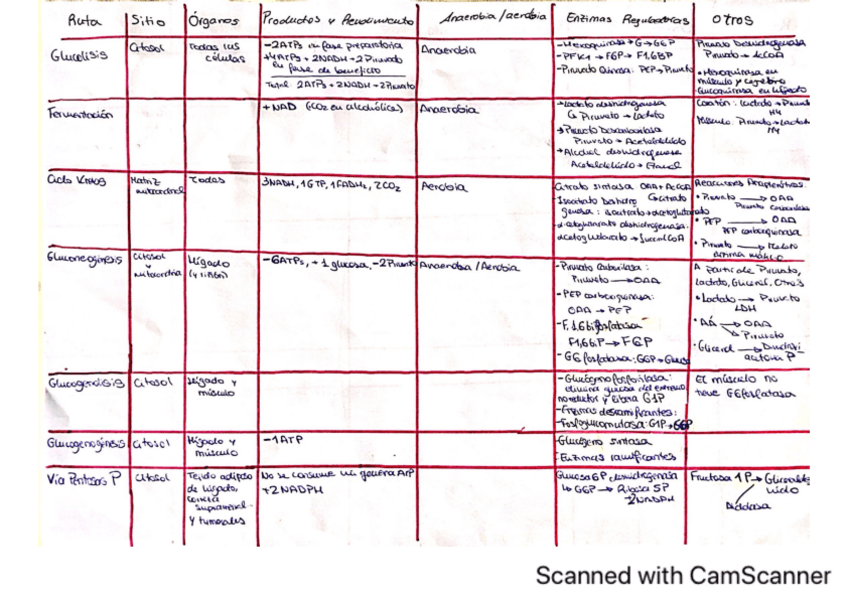 Ruta Sitio Órganos Productos y Rendimiento Anaerobia/aerobia Enzimas Reguladoras Otros
Glucolisis
Citosol
Todas las
células
-2ATPs en fase preparatoria
+4ATPs + 2NADH + 2Piruvato
en fase de beneficio
Total 2ATPs + 2NADH + 2Piruvato
Anaerobia
-Hexoquinasa → G → G6P
-PFK1 → F6P → F1,6BP
-Piruvato Quinasa: PEP → Piruvato
Piruvato Deshidrogenasa
Piruvato → AcCoA
• Hexoquinasa en
músculo y cerebro
Glucoquinasa en hígado
Fermentación
+ NAD (CO2 en alcohólica)
Anaerobia
→ Lactato deshidrogenasa
Piruvato → Lactato
→ Piruvato Descarboxilasa
Piruvato → Acetaldehído
→ Alcohol deshidrogenasa
Acetaldehído → Etanol
Corazón: Lactato → Piruvato
H4
Músculo: Piruvato → Lactato
M4
Ciclo Krebs
Matriz
mitocondrial
Todas
3NADH, 1GTP, 1FADH2, 2CO2
Aerobia
Citrato sintasa OAA + AcCoA
→ Citrato
Isocitrato deshidro
genasa: isocitrato → αcetoglutarato
α-cetoglutarato deshidrogenasa:
αcetoglutarato → SuccinilCoA
Reacciones Anapleróticas:
• Piruvato → OAA
Piruvato carboxilasa
• PEP → OAA
PEP carboxiquinasa
• Piruvato → Malato
enzima málico
Gluconeogénesis
Citosol
y
mitocondria
Hígado
(y riñón)
-6ATPs, +1 glucosa, -2Piruvato
Anaerobia /Aerobia
-Piruvato Carboxilasa:
Piruvato → OAA
- PEP carboxiquinasa:
OAA → PEP
- F1,6bifosfatasa
F1,6BP → F6P
- G6fosfatasa: G6P → Glucosa
A partir de Piruvato,
lactato, Glicerol, Otros
• Lactato → Piruvato
LDH
• AA → OAA
Piruvato
• Glicerol → Dihidroxi
acetona P
Glucogenolisis
Citosol
Hígado y
músculo
-Glucógeno fosforilasa:
elimina glucosa del extremo
no reductor y libera G1P
-Enzimas desramificantes:
-Fosfoglucomutasa: G1P → G6P
El músculo no
tiene G6fosfatasa
Glucogenogénesis
Citosol
Hígado y
músculo
-1ATP
-Glucógeno sintasa
-Enzimas ramificantes
Vía Pentosas P
Citosol
Tejido adiposo
de hígado,
suprarrenal
y tumorales
No se consume ni genera ATP
+2NADPH
Glucosa 6P deshidrogenasa
↳ G6P → Ribosa 5P
2NADPH
Fructosa 1P → Gliceralde
hído
Aldolasa
Scanned with CamScanner